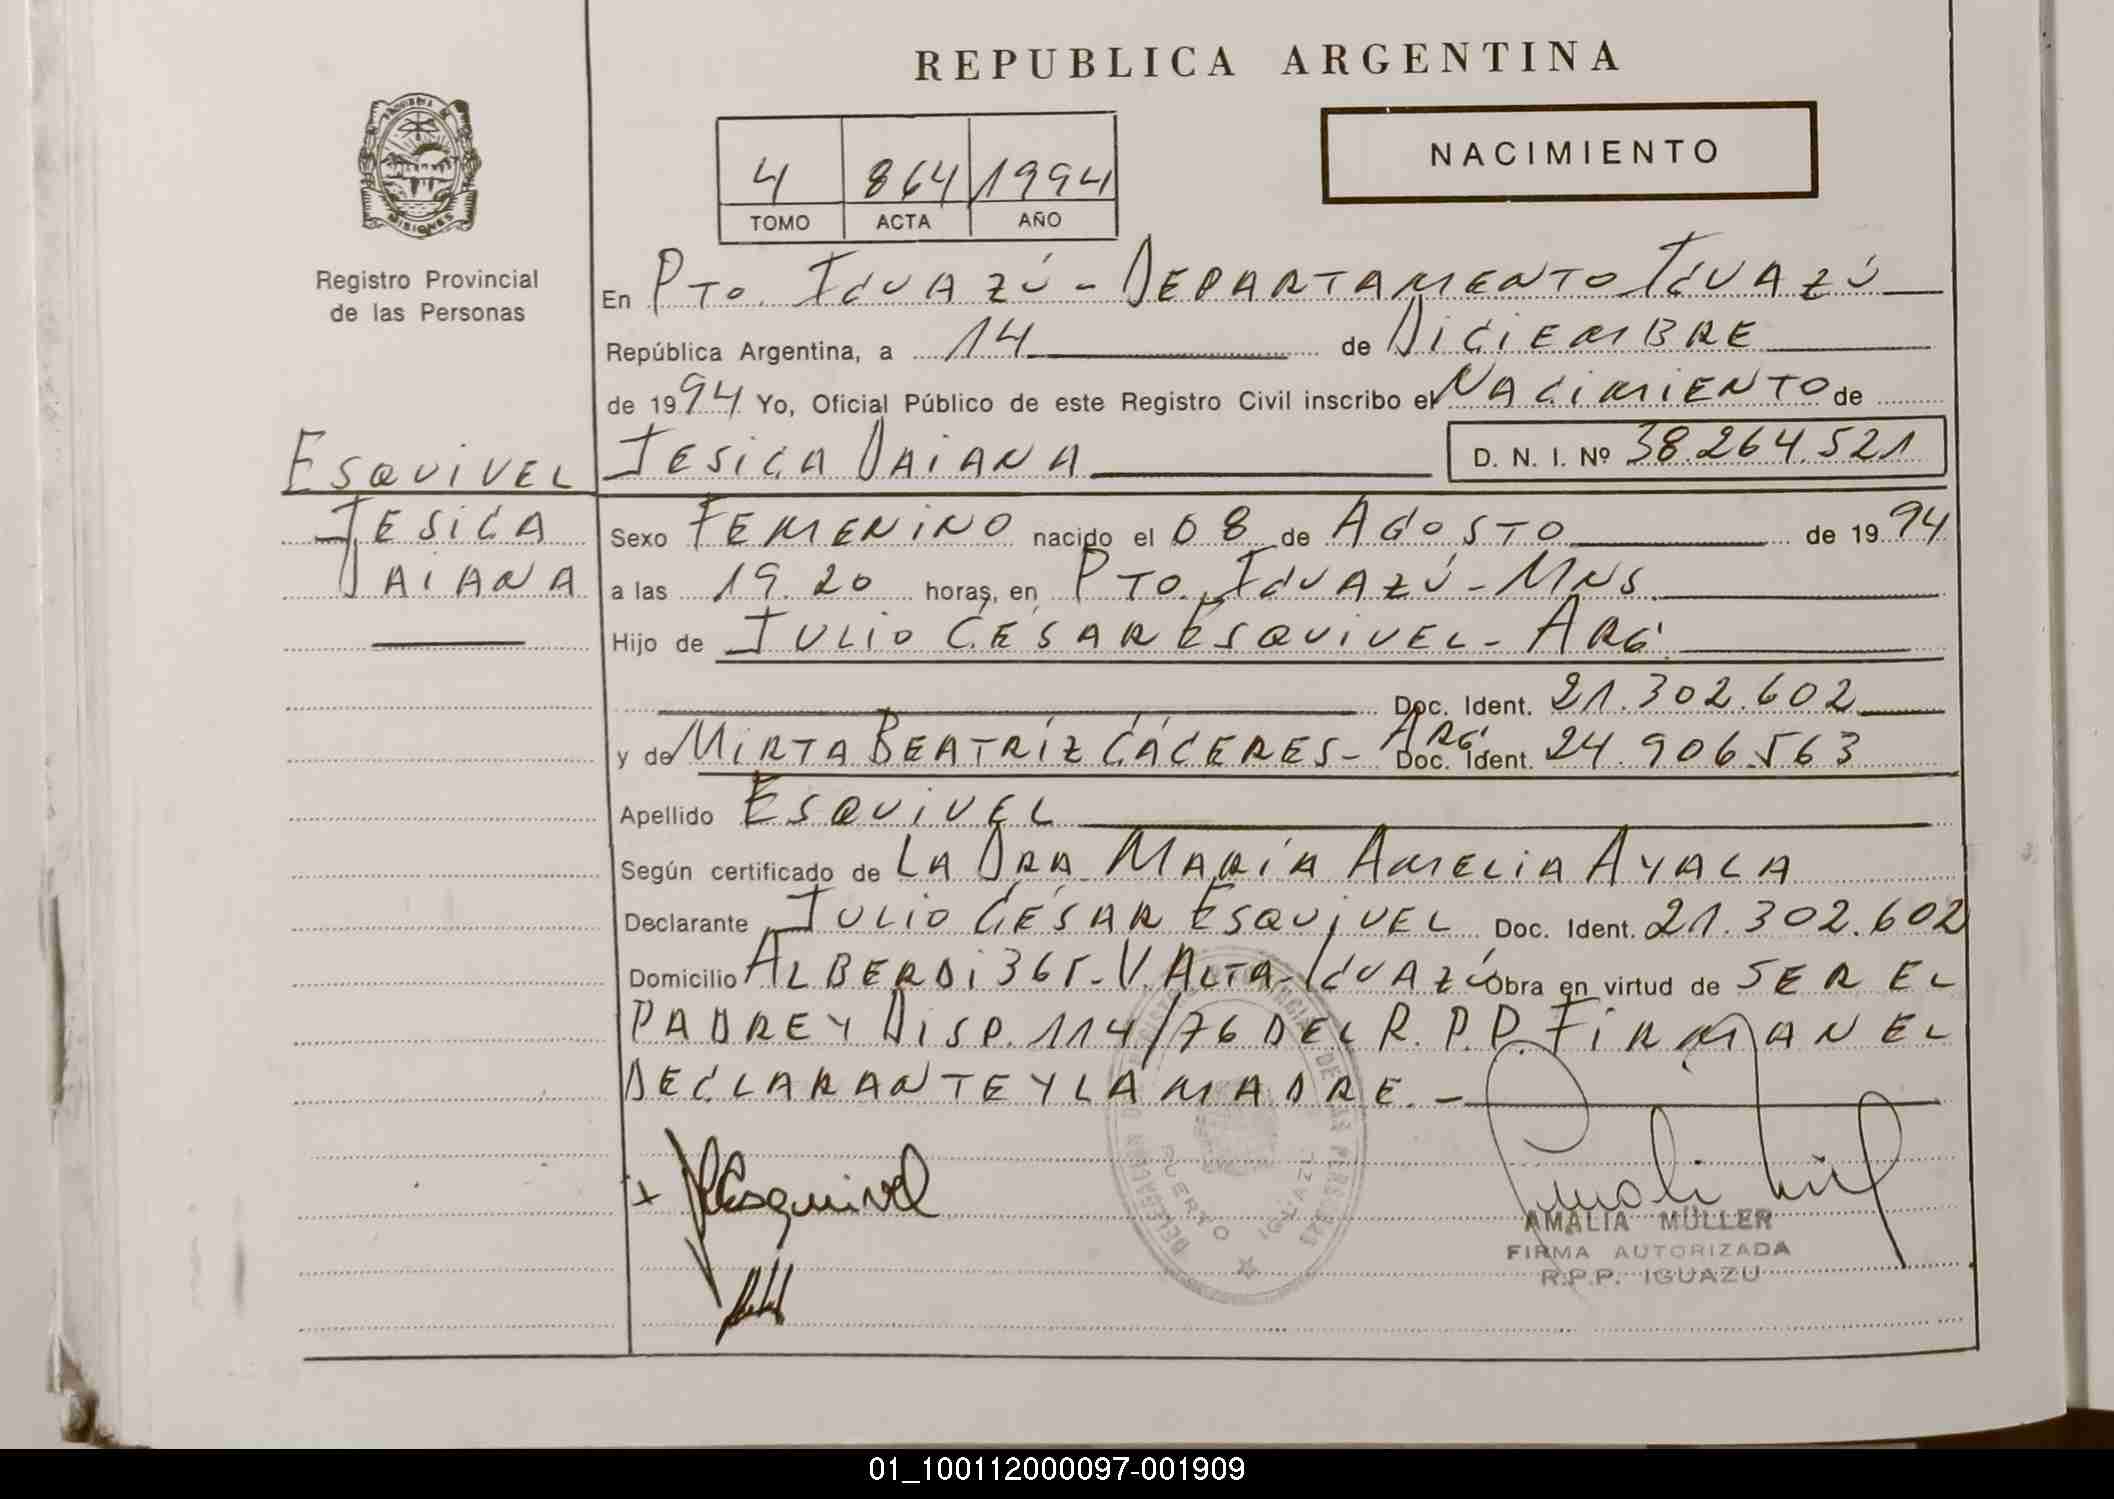 REPUBLICA ARGENTINA
PROVINCIA DE
MISIONES
Registro Provincial
de las Personas
4 864 1994
TOMO ACTA AÑO
NACIMIENTO
En PTO. IGUAZÚ - DEPARTAMENTO IGUAZÚ
República Argentina, a 14 de DICIEMBRE
de 1994 Yo, Oficial Público de este Registro Civil inscribo el NACIMIENTO de
ESQUIVEL JESICA DAIANA D. N. I. Nº 38.264.521
JESICA Sexo FEMENINO nacido el 08 de AGOSTO de 1994
DAIANA a las 19.20 horas, en PTO. IGUAZÚ - MNS.
Hijo de JULIO CÉSAR ESQUIVEL - ARG.
Doc. Ident. 21.302.602
y de MIRTA BEATRÍZ CÁCERES - ARG. Doc. Ident. 24.906.563
Apellido ESQUIVEL
Según certificado de LA DRA. MARÍA AMELIA AYALA
Declarante JULIO CÉSAR ESQUIVEL Doc. Ident. 21.302.602
Domicilio ALBERDI 365 - V. ALTA - IGUAZÚ Obra en virtud de SER EL
PADRE Y DISP. 114/76 DEL R.P.P. FIRMAN EL
DECLARANTE Y LA MADRE. -
Esquivel
DELEGACIÓN REGISTRO PROVINCIAL DE LAS PERSONAS
PUERTO IGUAZU
AMALIA MÜLLER
FIRMA AUTORIZADA
R.P.P. IGUAZU
01_100112000097-001909